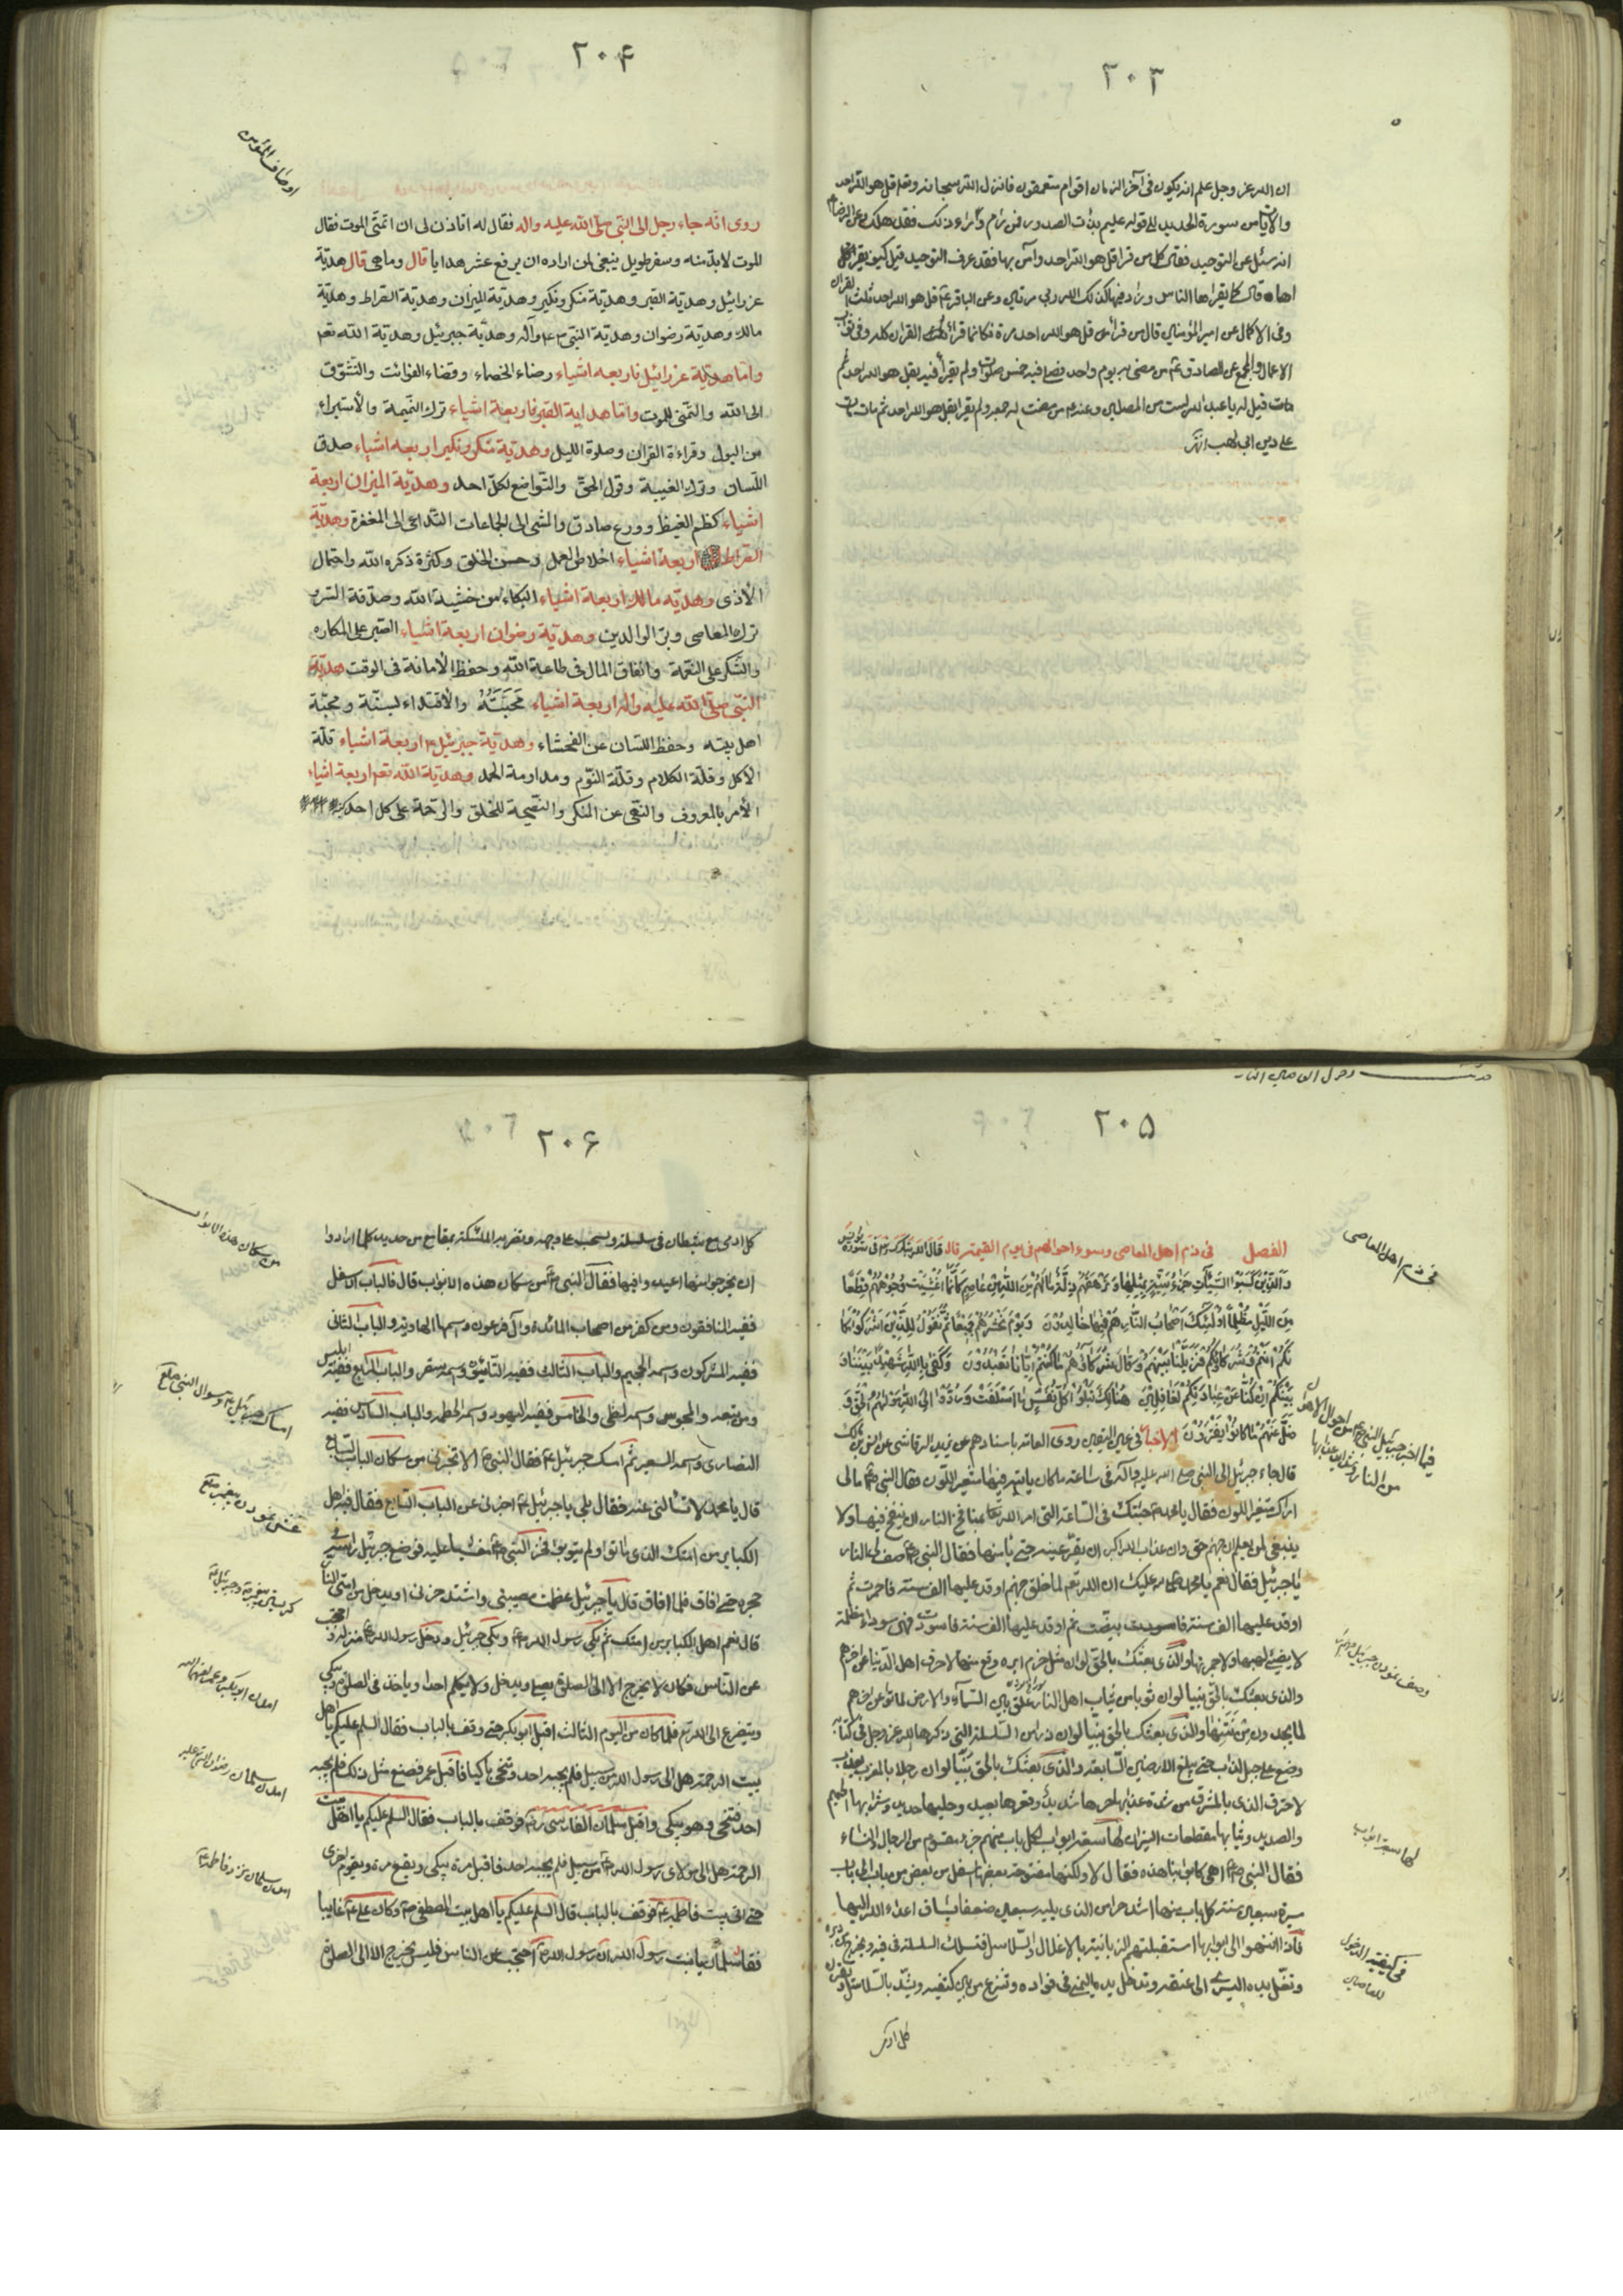 ٢٠٣
ان الله عز وجل علم انه يكون فى آخر الزمان اقوام متعمقون فانزل الله سبحانه وتعالى قل هو الله احد
والايات من سورة الحديد الى قوله عليم بذات الصدور فمن رام وراء ذلك فقد هلك وعن الرضا ع
انه سئل عن التوحيد فقال كل من قرا قل هو الله احد وآمن بها فقد عرف التوحيد قيل كيف يقراها
قال كما يقراها الناس وزاد فيها كذلك الله ربى مرتين وعن الباقر ع قل هو الله احد ثلث القران
وفى الاكمال عن امير المؤمنين قال من قرا قل هو الله احد مرة فكانما قرا ثلث القران
الاعمال والمجمع عن الصادق ع من مضى به يوم واحد فصلى فيه خمس صلوات ولم يقرا فيه بقل هو الله احد
قيل له يا عبد الله لست من المصلين وعنه من مضت له جمعة ولم يقرا بقل هو الله احد ثم مات مات
على دين ابى لهب
٢٠۴
اوصاف المؤمن
روى انّه جاء رجل الى النّبى صلّى الله عليه واله فقال له اتاذن لى ان اتمنّى الموت فقال
الموت لا بدّ منه وسفر طويل ينبغى لمن اراده ان يرفع عشر هدايا قال وما هى قال هديّة
عزرائيل وهديّة القبر وهديّة منكر ونكير وهديّة الميزان وهديّة الصّراط وهديّة
مالك وهديّة رضوان وهديّة النّبى ص وآله وهديّة جبرئيل وهديّة الله تعم
وامّا هديّة عزرائيل فاربعه اشياء رضاء الخصماء وقضاء الفوائت والتّشوّق
الى الله والتّمنى للموت وامّا هداية القبر فاربعة اشياء ترك النّميمة والأستبراء
من البول وقراءة القران وصلوة الليل وهديّة منكر ونكير اربعه اشياء صدق
اللّسان وترك الغيبة وقول الحقّ والتّواضع لكلّ احد وهديّة الميزان اربعة
اشياء كظم الغيظ وورع صادق والمشى الى الجماعات التّداعى الى المغفرة وهديّة
الصّراط اربعة اشياء اخلاص العمل وحسن الخلق وكثرة ذكره الله واحتمال
الأذى وهديّه مالك اربعة اشياء البكاء من خشية الله وصدقة السّر و
ترك المعاصى وبرّ الوالدين وهديّة رضوان اربعة اشياء الصّبر على المكاره
والشّكر على النّعمة وانفاق المال فى طاعة الله وحفظ الأمانة فى الوقت هديّة
النّبى صلّى الله عليه واله اربعة اشياء محبّته والأقتداء لسنّته ومحبّة
اهل بيته وحفظ اللّسان عن الفحشاء وهديّة جبرئيل ع اربعة اشياء قلّة
الأكل وقلّة الكلام وقلّة النّوم ومداومة الحمد وهديّة الله تعم اربعة اشياء
الأمر بالمعروف والنّهى عن المنكر والنّصيحة للخلق والرّحمة على كل احد
٢٠۵
فى ذم اهل المعاصى
الفصل فى ذم اهل المعاصى وسوء احوالهم فى يوم القيمة قال الله تبارك وتعالى فى سورة يونس
وَالَّذِينَ كَسَبُوا السَّيِّئاتِ جَزٰاءُ سَيِّئَةٍ بِمِثْلِهٰا وَتَرْهَقُهُمْ ذِلَّةٌ مٰا لَهُمْ مِنَ اللّٰهِ مِنْ عٰاصِمٍ كَاَنَّمٰا اُغْشِيَتْ وُجُوهُهُمْ قِطَعاً
مِنَ اللَّيْلِ مُظْلِماً اُولٰئِكَ اَصْحٰابُ النّٰارِ هُمْ فِيهٰا خٰالِدُونَ وَيَوْمَ نَحْشُرُهُمْ جَمِيعاً ثُمَّ نَقُولُ لِلَّذِينَ اَشْرَكُوا مَكٰا
نَكُمْ اَنْتُمْ وَشُرَكٰاؤُكُمْ فَزَيَّلْنٰا بَيْنَهُمْ وَقٰالَ شُرَكٰاؤُهُمْ مٰا كُنْتُمْ اِيّٰانٰا تَعْبُدُونَ وَكَفٰى بِاللّٰهِ شَهِيداً بَيْنَنٰا وَ
بَيْنَكُمْ اِنْ كُنّٰا عَنْ عِبٰادَتِكُمْ لَغٰافِلِينَ هُنٰالِكَ تَبْلُوا كُلُّ نَفْسٍ مٰا اَسْلَفَتْ وَرُدُّوا اِلَى اللّٰهِ مَوْلٰيهُمُ الْحَقِّ وَ
ضَلَّ عَنْهُمْ مٰا كٰانُوا يَفْتَرُونَ الاخبار فى عين اليقين روى العامة باسنادهم عن يزيد الرقاشى عن انس بن مالك
فيما اخبر جبرئيل النبى ص من احوال
من النار
قال جاء جبرئيل الى النبى صلى الله عليه وآله فى ساعة ما كان ياتيه فيها متغير اللون فقال النبى ص مالى
اراك متغير اللون فقال يا محمد جئتك فى الساعة التى امر الله بمنافخ النار ان ينفخ فيها ولا
ينبغى لمن يعلم ان جهنم حق وان عذاب الله اكبر ان يقر عينه حتى يامنها فقال النبى ص صف لى النار
يا جبرئيل فقال نعم يا محمد ان الله تعم لما خلق جهنم اوقد عليها الف سنة فاحمرت ثم
اوقد عليها الف سنة فابيضت ثم اوقد عليها الف سنة فاسودت فهى سوداء مظلمة
لا يضئ لهبها ولا جمرها والذى بعثك بالحق لو ان مثل خرم ابرة وقع منها لاحرق اهل الدنيا عن اخرهم
والذى بعثك بالحق نبيا لو ان ثوبا من ثياب اهل النار علق بين السماء والارض لماتوا عن اخرهم
لما يجدون من نتنها والذى بعثك بالحق نبيا لو ان ذراعا من السلسلة التى ذكرها الله عز وجل فى كتابه
وضع على جبل لذاب حتى يبلغ الارضين السابعة والذى بعثك بالحق نبيا لو ان رجلا بالمغرب يعذب
لاحترق الذى بالمشرق من شدة عذابها حرها شديد وقعرها بعيد وحليها حديد وشرابها الحميم
والصديد وثيابها مقطعات النيران لها سبعة ابواب لكل باب منهم جزء مقسوم من الرجال والنساء
لها سبعة ابواب
فقال النبى ص اهى كابوابنا هذه فقال لا ولكنها مفتوحة بعضها اسفل من بعض من باب الى باب
مسيرة سبعين سنة كل باب منها اشد حرا من الذى يليه سبعين ضعفا يساق اعداء الله اليها
فاذا انتهوا الى ابوابها استقبلتهم الزبانية بالاغلال والسلاسل فتسلك السلسلة فى فيه وتخرج من دبره
فى كيفية الدخول
للعاصين
وتغل يده اليسرى الى عنقه وتدخل يده اليمنى فى فؤاده وتنزع من بين كتفيه ويشد بالسلاسل ويقرن
كل ادمى
٢٠۶
كل ادمى مع شيطان فى سلسلة ويسحب على وجهه وتضربه الملئكة بمقامع من حديد كلما ارادوا
من سكان هذه الابواب
ان يخرجوا منها اعيدوا فيها فقال النبى ص من سكان هذه الابواب قال فالباب الاسفل
ففيه المنافقون ومن كفر من اصحاب المائدة وآل فرعون واسمها الهاوية والباب الثانى
ففيه المشركون واسمه الجحيم والباب الثالث ففيه الصابئون واسمه سقر والباب الرابع ففيه ابليس
ومن تبعه والمجوس واسمه لظى والخامس ففيه اليهود واسمه الحطمة والباب السادس ففيه
النصارى واسمه السعير ثم امسك جبرئيل ع فقال النبى ص الا تخبرنى من سكان الباب السابع
قال يا محمد لا تسألنى عنه فقال بلى يا جبرئيل اخبرنى عن الباب السابع فقال فيه اهل
الكباير من امتك الذى ماتوا ولم يتوبوا فخر النبى ص مغشيا عليه فوضع جبرئيل راسه فى
حجره حتى افاق فلما افاق قال يا جبرئيل عظمت مصيبتى واشتد حزنى او يدخل من امتى النار
قال نعم اهل الكباير من امتك ثم بكى رسول الله ص وبكى جبرئيل ودخل رسول الله ص منزله واحتجب
عن الناس فكان لا يخرج الا الى الصلوة يصلى ويدخل ولا يكلم احدا وياخذ فى الصلوة ويبكى
ويتضرع الى الله تعم فلما كان من اليوم الثالث اقبل ابو بكر حتى وقف بالباب فقال السلم عليكم يا اهل
بيت الرحمة هل الى رسول الله من سبيل فلم يجبه احد وتنحى باكيا فاقبل عمر فصنع مثل ذلك فلم يجبه
احد فتنحى وهو يبكى واقبل سلمان الفارسى ره فوقف بالباب فقال السلم عليكم يا اهل بيت
الرحمة هل الى مولاى رسول الله ص من سبيل فلم يجبه احد فاقبل مرة يبكى ويقع مرة ويقوم اخرى
حتى اتى بيت فاطمة ع فوقف بالباب قال السلم عليكم يا اهل بيت المصطفى ص وكان على ع غايبا
فقال سلمان يا بنت رسول الله ان رسول الله ص احتجب عن الناس فليس يخرج الا الى الصلوة